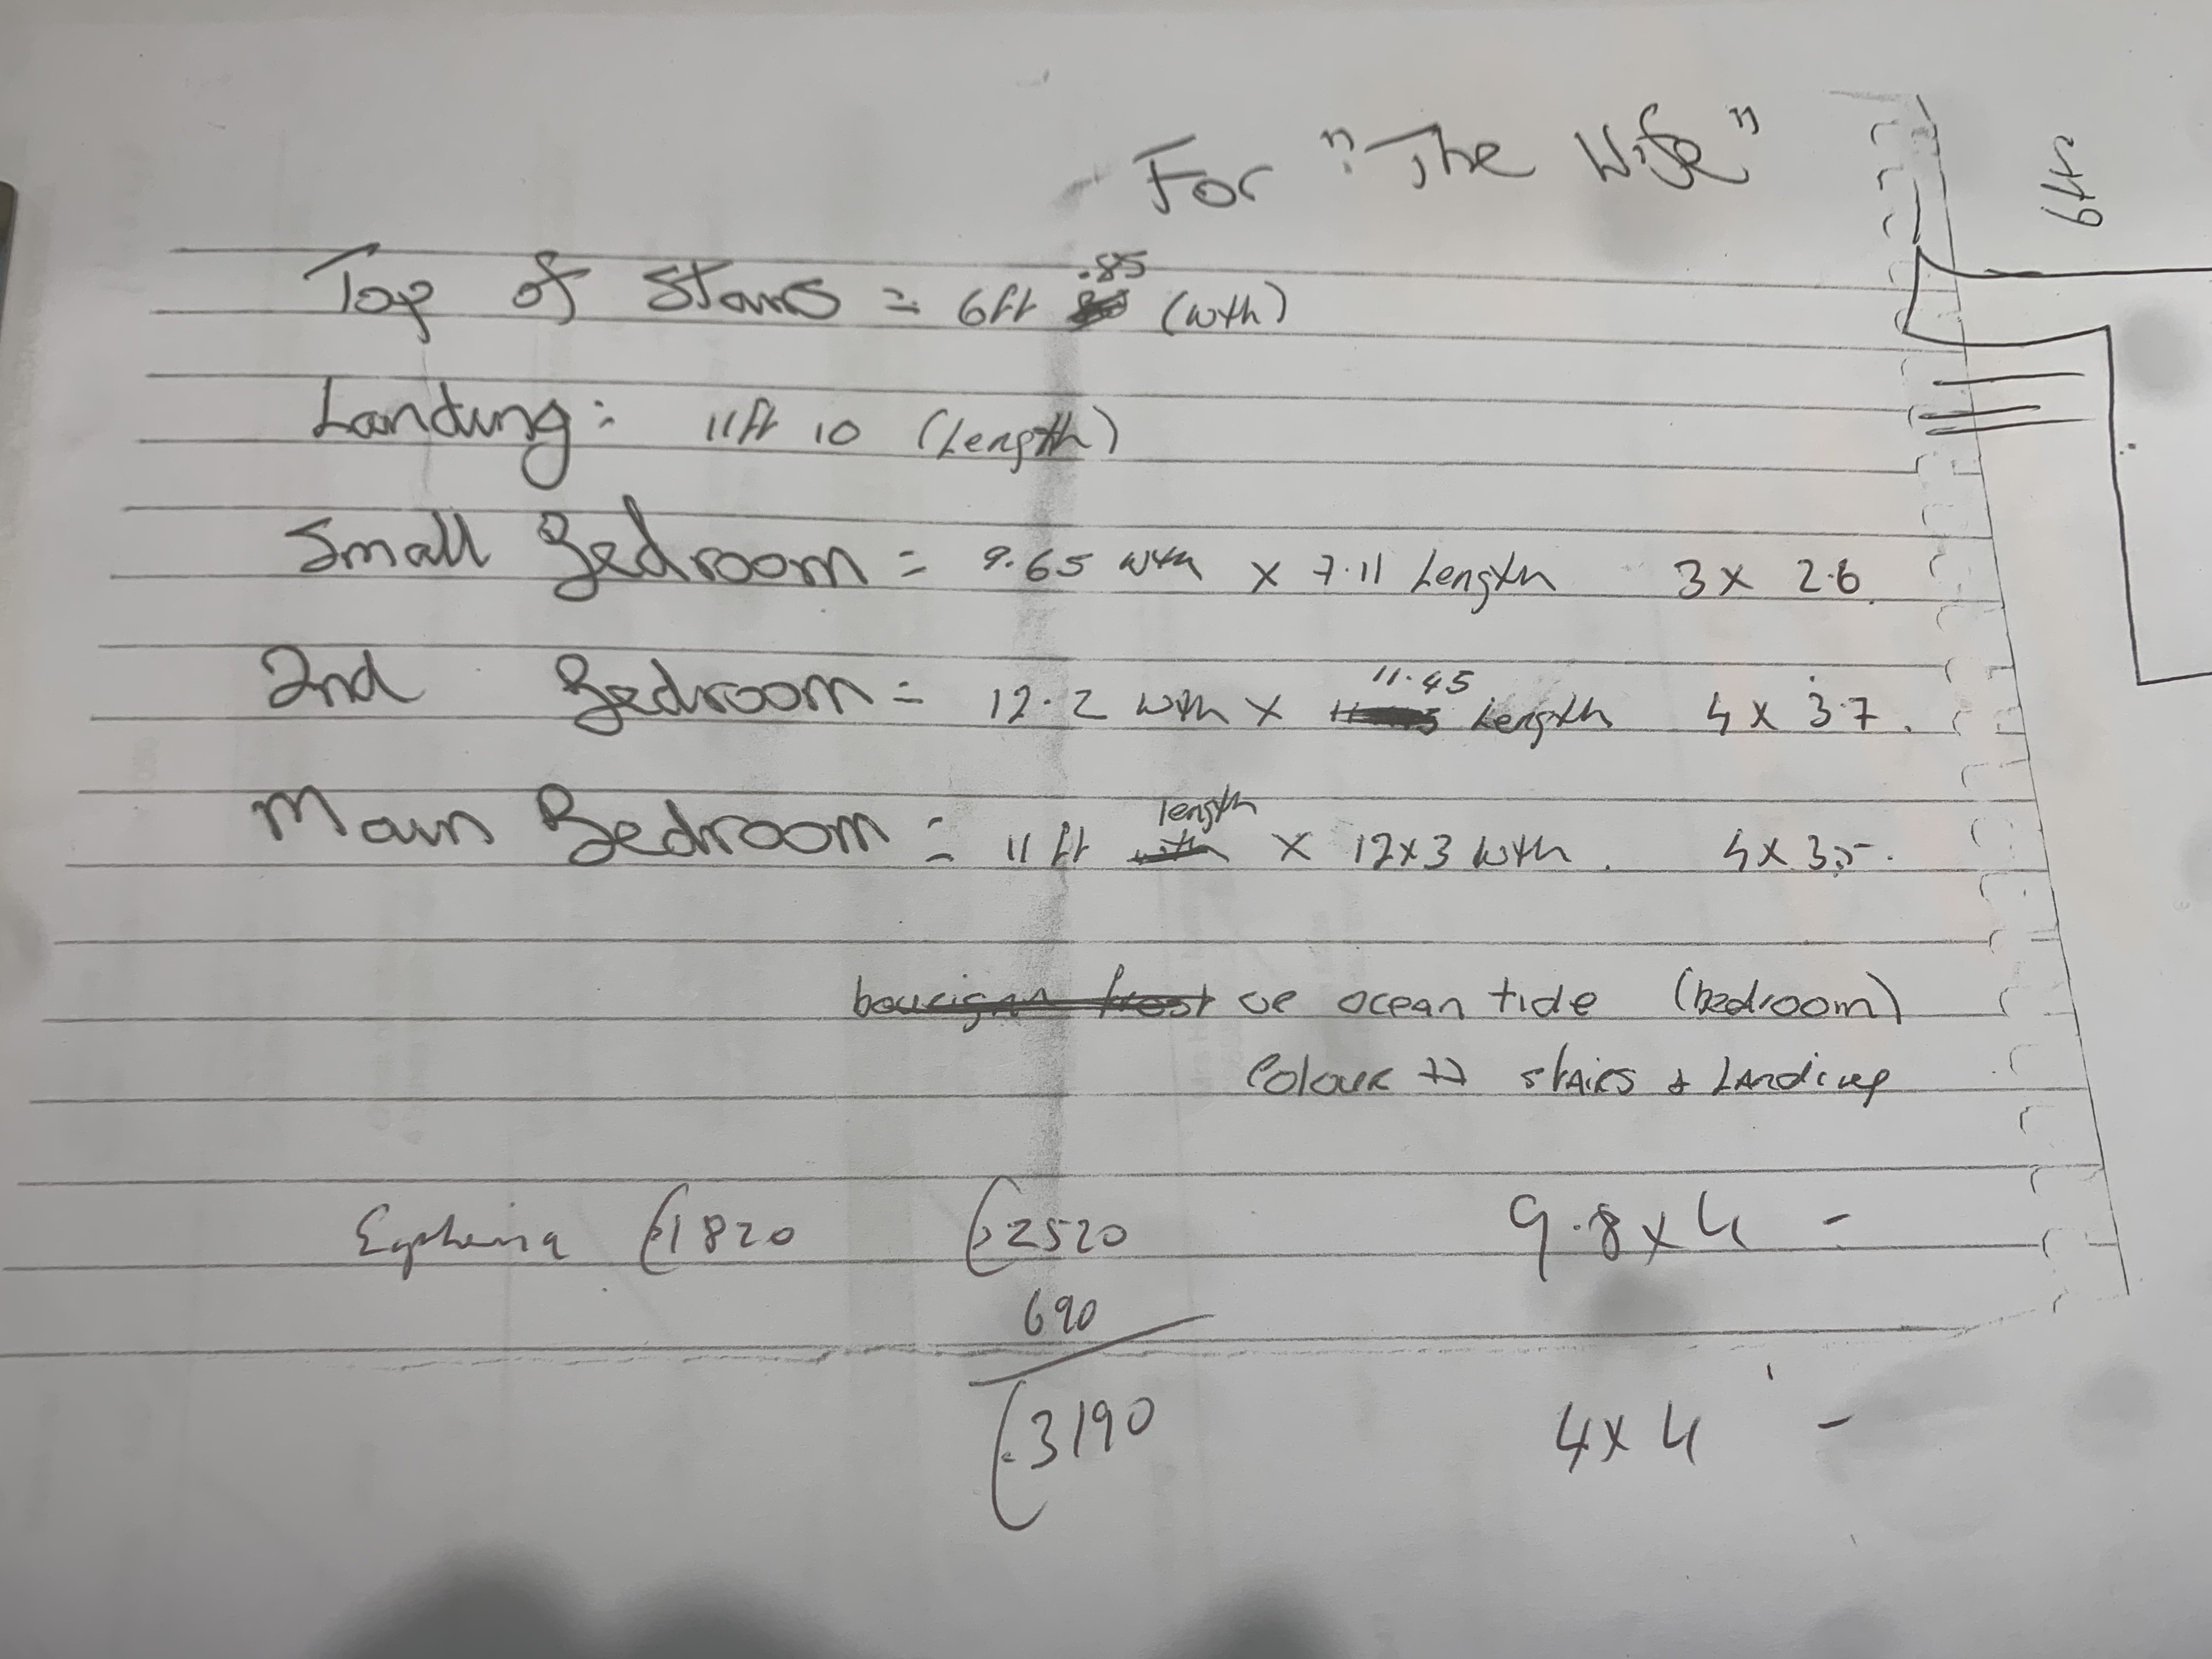 For "The Wife"
6ft
Top of Stairs = 6ft .85 (wth)
Landing: 11ft 10 (Length)
Small Bedroom = 9.65 wth x 7.11 Length 3 x 2.6
2nd Bedroom = 12.2 wth x 11.45 Length 4 x 3.7
Main Bedroom = 11ft length x 12x3 wth. 4 x 3.5
or ocean tide (bedroom)
Colour 77 stairs & Landing
€1820 €2520 9.8 x 4 -
690
€3190 4 x 4 -